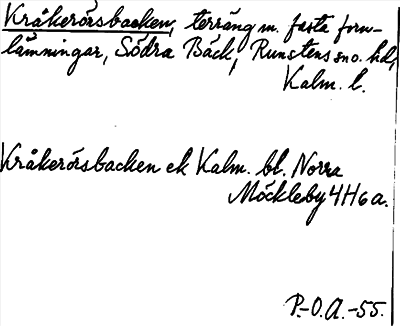 Kråkerörsbacken, terräng m. fasta forn-
lämningar, Södra Bäck, Runstens sn o. hd,
Kalm. l.
Kråkerörsbacken ek Kalm. bl. Norra
Möckleby 4H6a.
P.-O.A.-55.